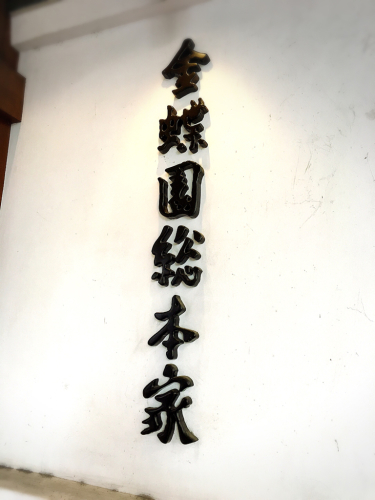 金蝶園総本家